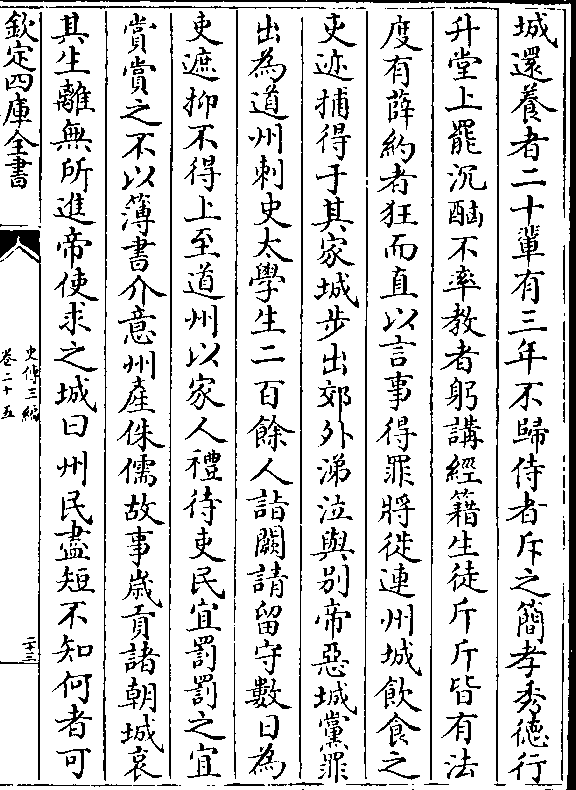 城還養者二十輩有三年不歸侍者斥之簡孝秀德行
升堂上罷沉酗不率教者躬講經籍生徒斤斤皆有法
度有薛約者狂而直以言事得罪將徙連州城飲食之
吏迹捕得于其家城步出郊外涕泣與别帝惡城黨罪
出為道州刺史太學生二百餘人詣闕請留守數日為
吏遮抑不得上至道州以家人禮待吏民宜罰罰之宜
賞賞之不以簿書介意州產侏儒故事歲貢諸朝城哀
其生離無所進帝使求之城曰州民盡短不知何者可
欽定四庫全書
史傳三編
卷二十五
二十三